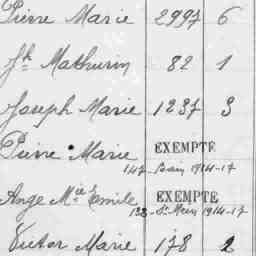 Pierre Marie 2997 6
Jh Mathurin 82 1
Joseph Marie 1237 3
Pierre Marie EXEMPTE
147 - Bain 1914-17
Ange Mie Emile EXEMPTE
138 - St Méen 1914-17
Victor Marie 178 2